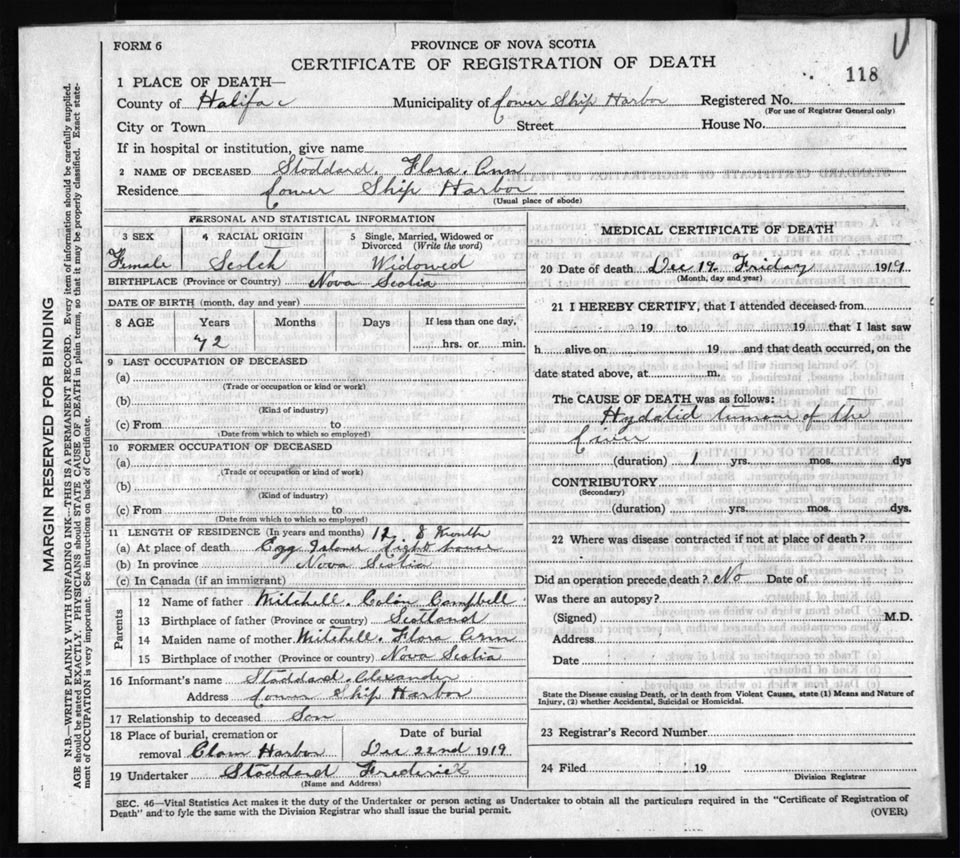 FORM 6
PROVINCE OF NOVA SCOTIA
CERTIFICATE OF REGISTRATION OF DEATH
118
1 PLACE OF DEATH—
County of Halifax Municipality of Lower Ship Harbor Registered No.
(For use of Registrar General only)
City or Town Street House No.
If in hospital or institution, give name
2 NAME OF DECEASED Stoddard. Flora. Ann
Residence Lower Ship Harbor
(Usual place of abode)
MARGIN RESERVED FOR BINDING
N.B.—WRITE PLAINLY WITH UNFADING INK—THIS IS A PERMANENT RECORD. Every item of information should be carefully supplied.
AGE should be stated EXACTLY. PHYSICIANS should STATE CAUSE OF DEATH in plain terms, so that it may be properly classified. Exact state-
ment of OCCUPATION is very important. See instructions on back of Certificate.
PERSONAL AND STATISTICAL INFORMATION
3 SEX 4 RACIAL ORIGIN 5 Single, Married, Widowed or
Divorced (Write the word)
Female Scotch Widowed
BIRTHPLACE (Province or Country) Nova Scotia
DATE OF BIRTH (month, day and year)
8 AGE Years Months Days If less than one day,
72 hrs. or min.
9 LAST OCCUPATION OF DECEASED
(a)
(Trade or occupation or kind of work)
(b)
(Kind of industry)
(c) From to
(Date from which to which so employed)
10 FORMER OCCUPATION OF DECEASED
(a)
(Trade or occupation or kind of work)
(b)
(Kind of industry)
(c) From to
(Date from which to which so employed)
11 LENGTH OF RESIDENCE (In years and months) 12. 8 Months
(a) At place of death Egg Island Light house
(b) In province Nova Scotia
(c) In Canada (if an immigrant)
Parents
12 Name of father Mitchell. Colin Campbell
13 Birthplace of father (Province or country) Scotland
14 Maiden name of mother Mitchell. Flora Ann
15 Birthplace of mother (Province or country) Nova Scotia
16 Informant's name Stoddard. Alexander
Address Lower Ship Harbor
17 Relationship to deceased Son
18 Place of burial, cremation or Date of burial
removal Clam Harbor Dec 22nd 1919
19 Undertaker Stoddard Frederick
(Name and Address)
MEDICAL CERTIFICATE OF DEATH
20 Date of death Dec 19 Friday 1919
(Month, day and year)
21 I HEREBY CERTIFY, that I attended deceased from
19 to 19 that I last saw
h alive on 19 and that death occurred, on the
date stated above, at m.
The CAUSE OF DEATH was as follows:
Hydatid tumour of the
Liver
(duration) 1 yrs. mos. dys
CONTRIBUTORY
(Secondary)
(duration) yrs. mos. dys.
22 Where was disease contracted if not at place of death?
Did an operation precede death? No Date of
Was there an autopsy?
(Signed) M.D.
Address
Date
State the Disease causing Death, or in death from Violent Causes, state (1) Means and Nature of
Injury, (2) whether Accidental, Suicidal or Homicidal.
23 Registrar's Record Number
24 Filed 19
Division Registrar
SEC. 46—Vital Statistics Act makes it the duty of the Undertaker or person acting as Undertaker to obtain all the particulars required in the "Certificate of Registration of
Death" and to fyle the same with the Division Registrar who shall issue the burial permit. (OVER)